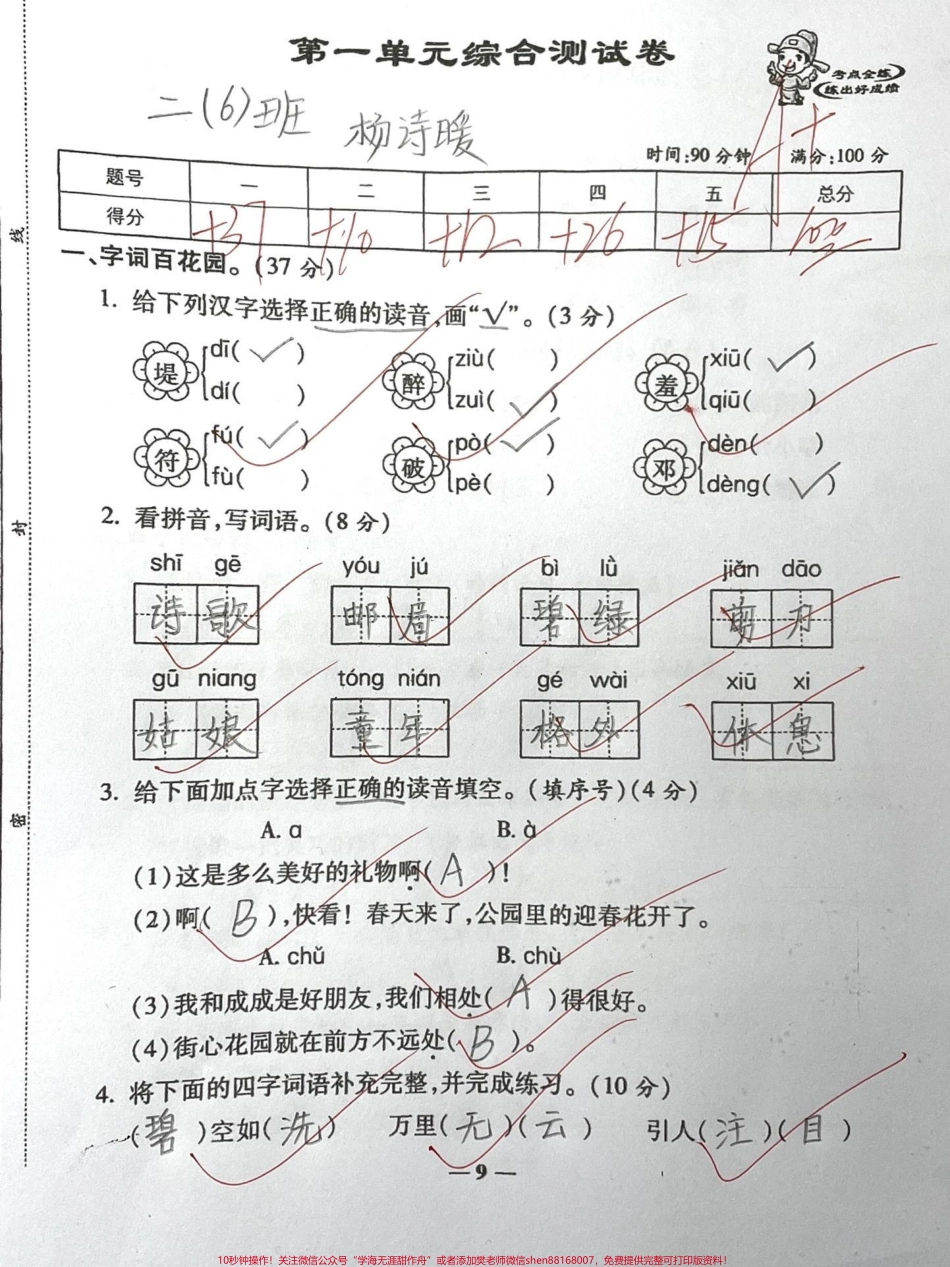 第一单元综合测试卷
考点全练
练出好成绩
二(6)班 杨诗暖
时间:90分钟 满分:100分
题号 一 二 三 四 五 总分
得分 +37 +10 +12 +26 +15 100
一、字词百花园。(37分)
1. 给下列汉字选择正确的读音,画“√”。(3分)
堤 dī( ✓ ) dí( ) 醉 ziù( ) zuì( ✓ ) 羞 xiū( ✓ ) qiū( )
符 fú( ✓ ) fù( ) 破 pò( ✓ ) pè( ) 邓 dèn( ) dèng( ✓ )
2. 看拼音,写词语。(8分)
shī gē yóu jú bì lǜ jiǎn dāo
诗歌 邮局 碧绿 剪刀
gū niang tóng nián gé wài xiū xi
姑娘 童年 格外 休息
3. 给下面加点字选择正确的读音填空。(填序号)(4分)
A. ɑ B. à
(1)这是多么美好的礼物啊( A )!
(2)啊( B ),快看! 春天来了,公园里的迎春花开了。
A. chǔ B. chù
(3)我和成成是好朋友,我们相处( A )得很好。
(4)街心花园就在前方不远处( B )。
4. 将下面的四字词语补充完整,并完成练习。(10分)
( 碧 )空如( 洗 ) 万里( 无 )( 云 ) 引人( 注 )( 目 )
— 9 —
线
封
密
10秒钟操作！关注微信公众号“学海无涯甜作舟”或者添加樊老师微信shen88168007，免费提供完整可打印版资料！